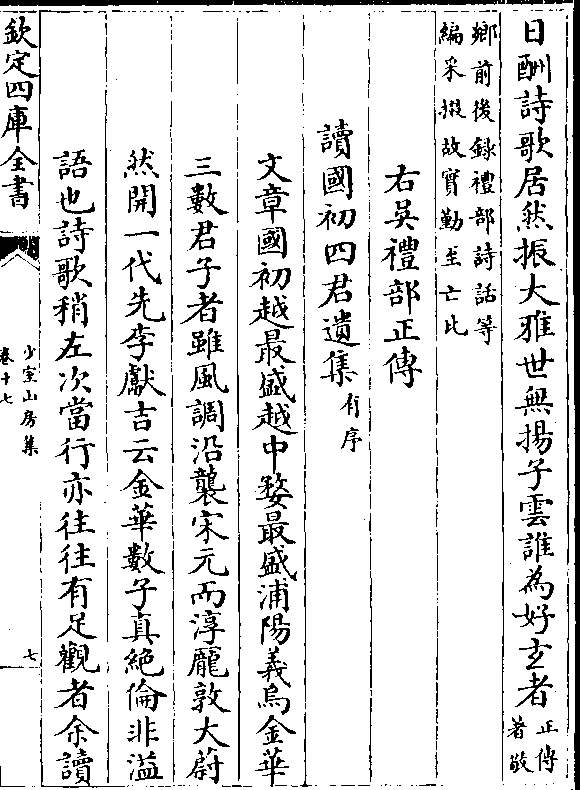 日酬詩歌居然振大雅世無揚子雲誰為好玄者正傳著敬
鄉前後録禮部詩話等
編采掇故實勤至亡比
右吳禮部正傳
讀國初四君遺集有序
文章國初越最盛越中婺最盛浦陽義烏金華
三數君子者雖風調沿襲宋元而淳龐敦大蔚
然開一代先李獻吉云金華數子真絶倫非溢
語也詩歌稍左次當行亦往往有足觀者余讀
欽定四庫全書
少室山房集
卷十七
七